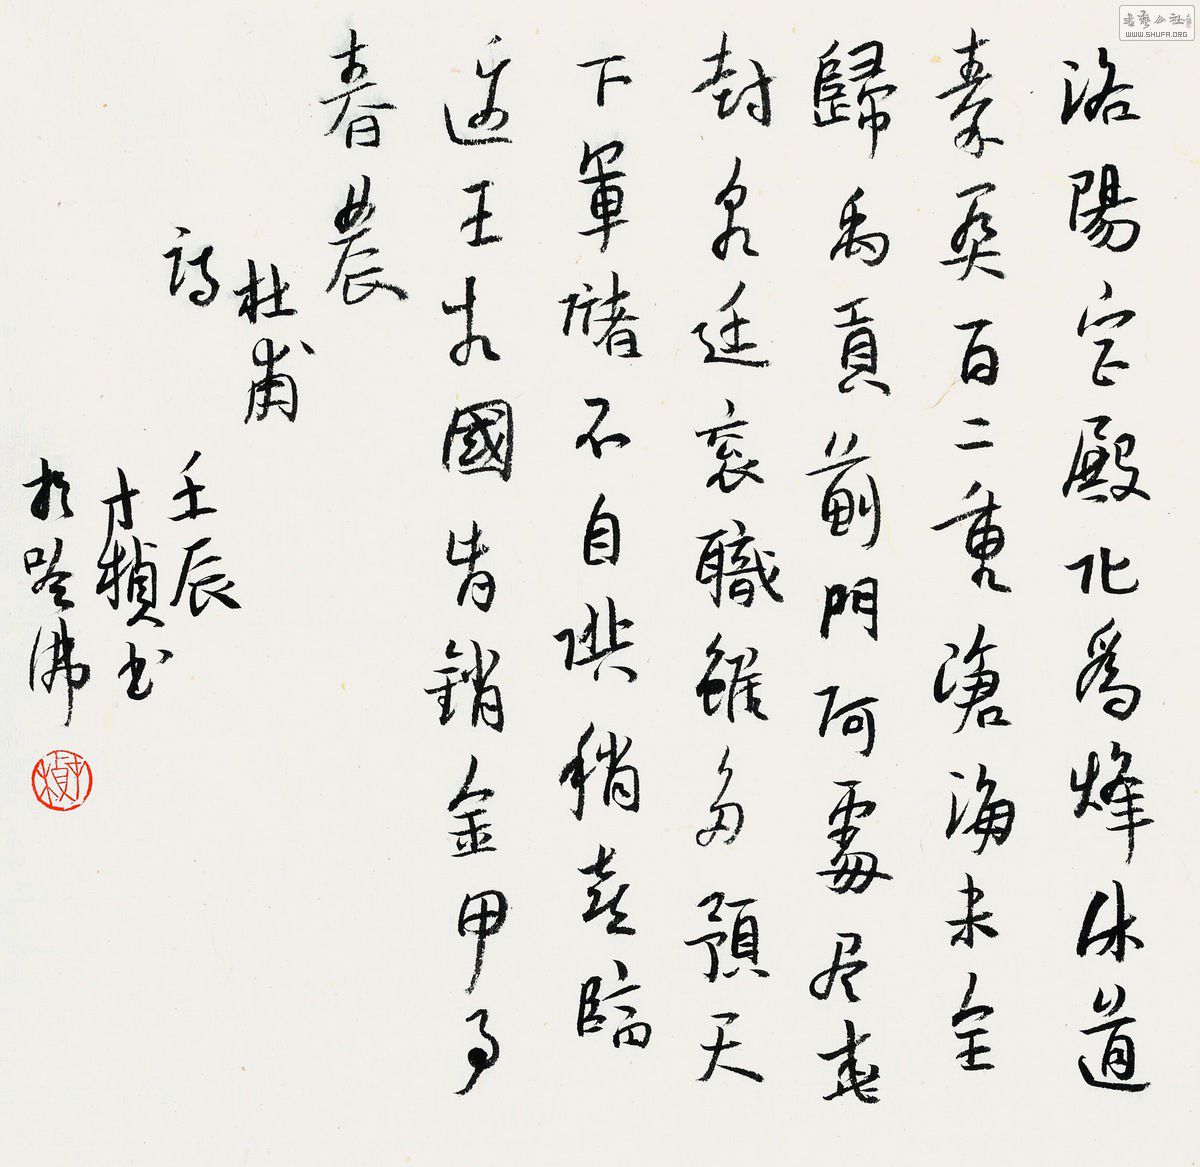 洛陽宮殿化為烽休道
秦關百二重滄海未全
歸禹貢薊門何處尽堯
封朝廷衮職雖多預天
下軍儲不自供稍喜臨
邊王相國肯銷金甲事
春農
杜甫
詩
壬辰
才楨书
於哈佛
WWW.SHUFA.ORG